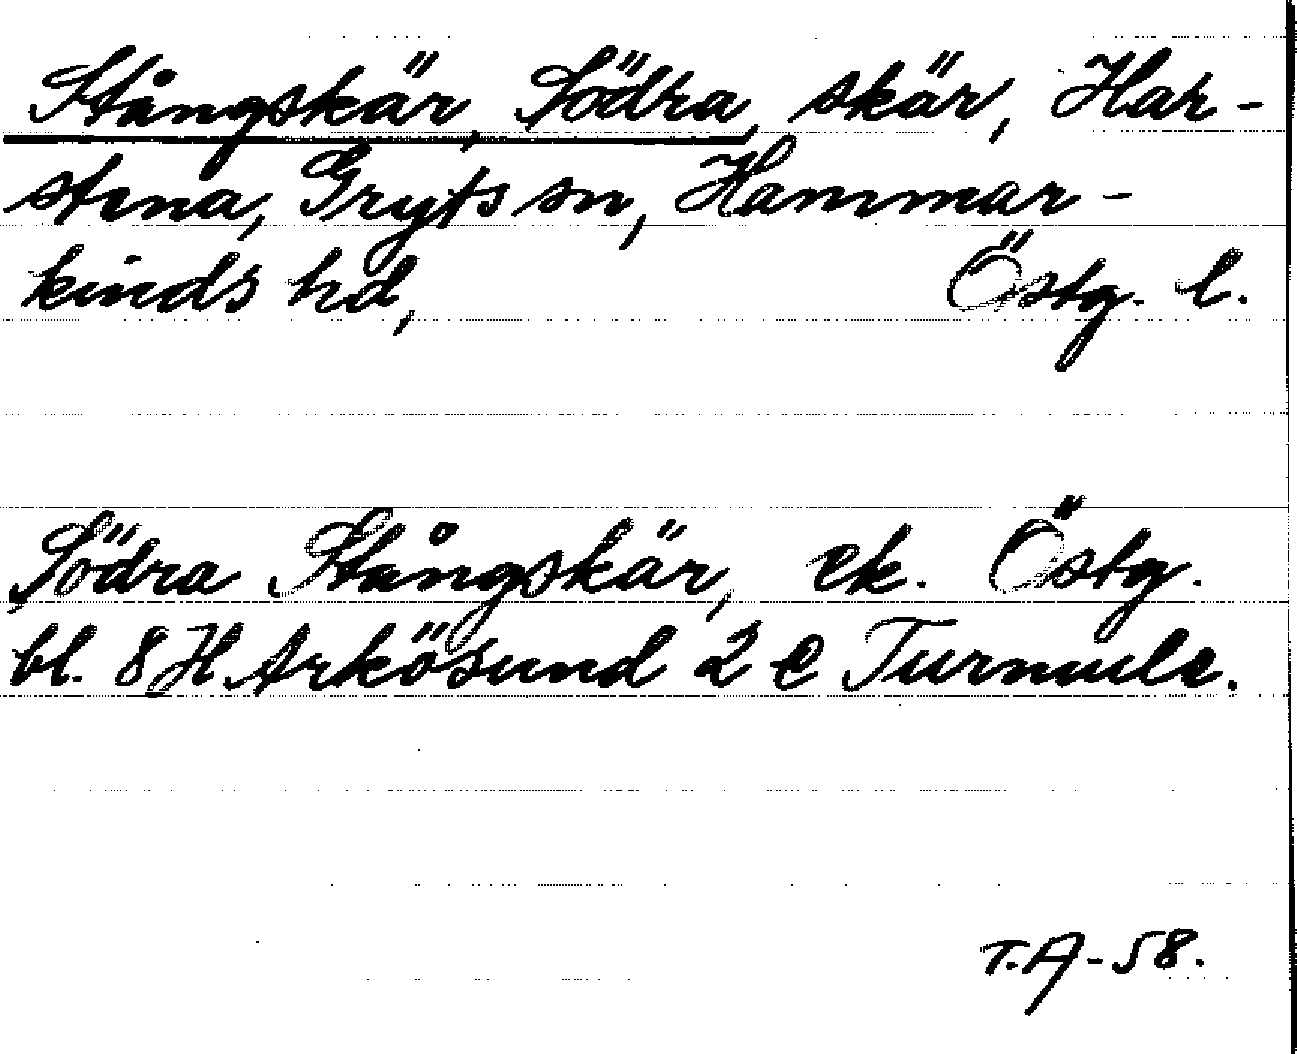 Stångskär, Södra, skär, Har-
stena, Gryts sn, Hammar-
kinds hd, Östg. l.
Södra Stångskär, ek. Östg.
bl. 8 H Arkösund 2 e Turmule.
T.A-58.